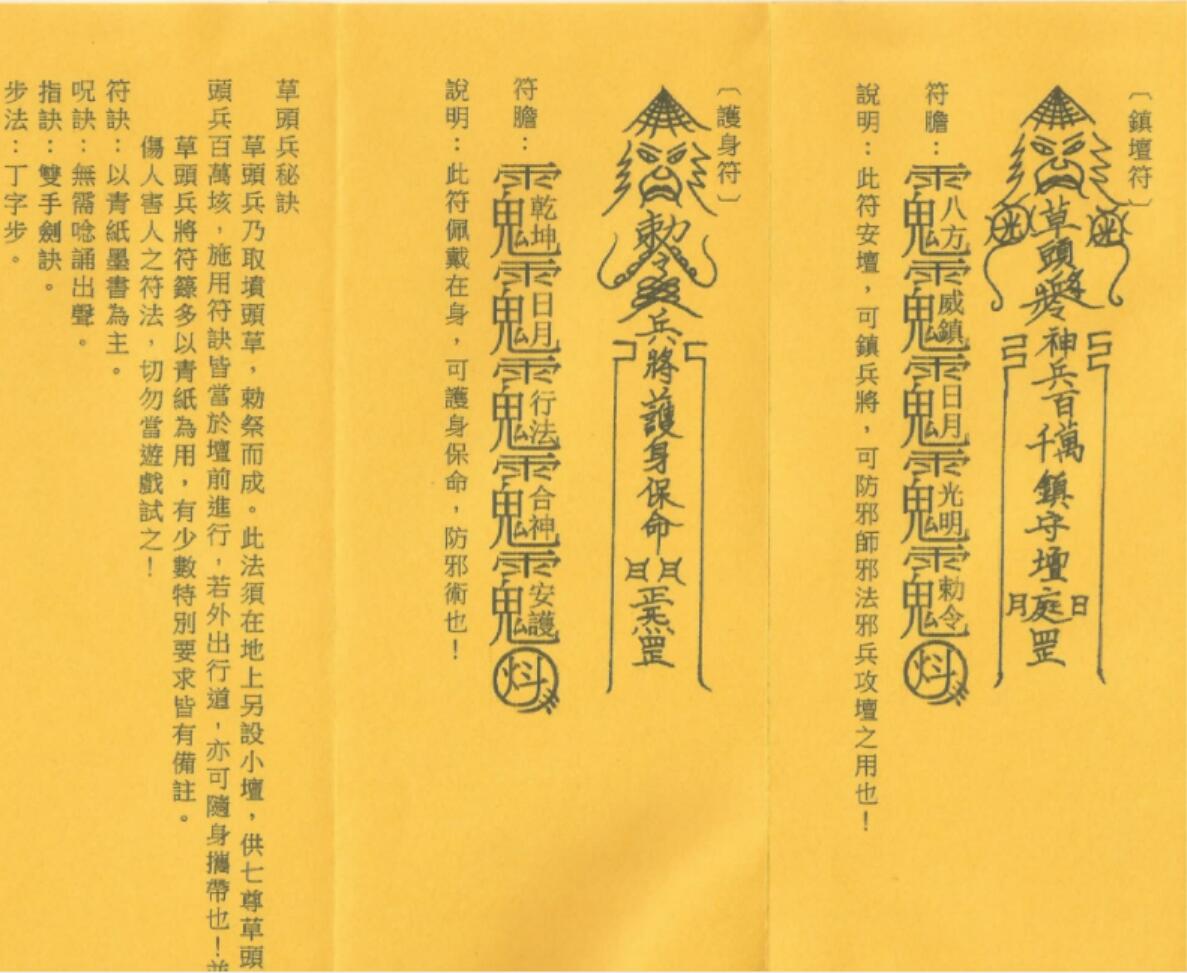 〔鎮壇符〕
草頭將令神兵百萬千鎮守壇庭罡
日
月
符膽：
八方威鎮日月光明勅令
說明：此符安壇，可鎮兵將，可防邪師邪法邪兵攻壇之用也！
〔護身符〕
勅令
兵將護身保命
日月
正炁罡
符膽：
乾坤日月行法合神安護
說明：此符佩戴在身，可護身保命，防邪術也！
草頭兵秘訣
草頭兵乃取墳頭草，勅祭而成。此法須在地上另設小壇，供七尊草頭
頭兵百萬垓，施用符訣皆當於壇前進行，若外出行道，亦可隨身攜帶也！
草頭兵將符籙多以青紙為用，有少數特別要求皆有備註。
傷人害人之符法，切勿當遊戲試之！
符訣：以青紙墨書為主。
呪訣：無需唸誦出聲。
指訣：雙手劍訣。
步法：丁字步。